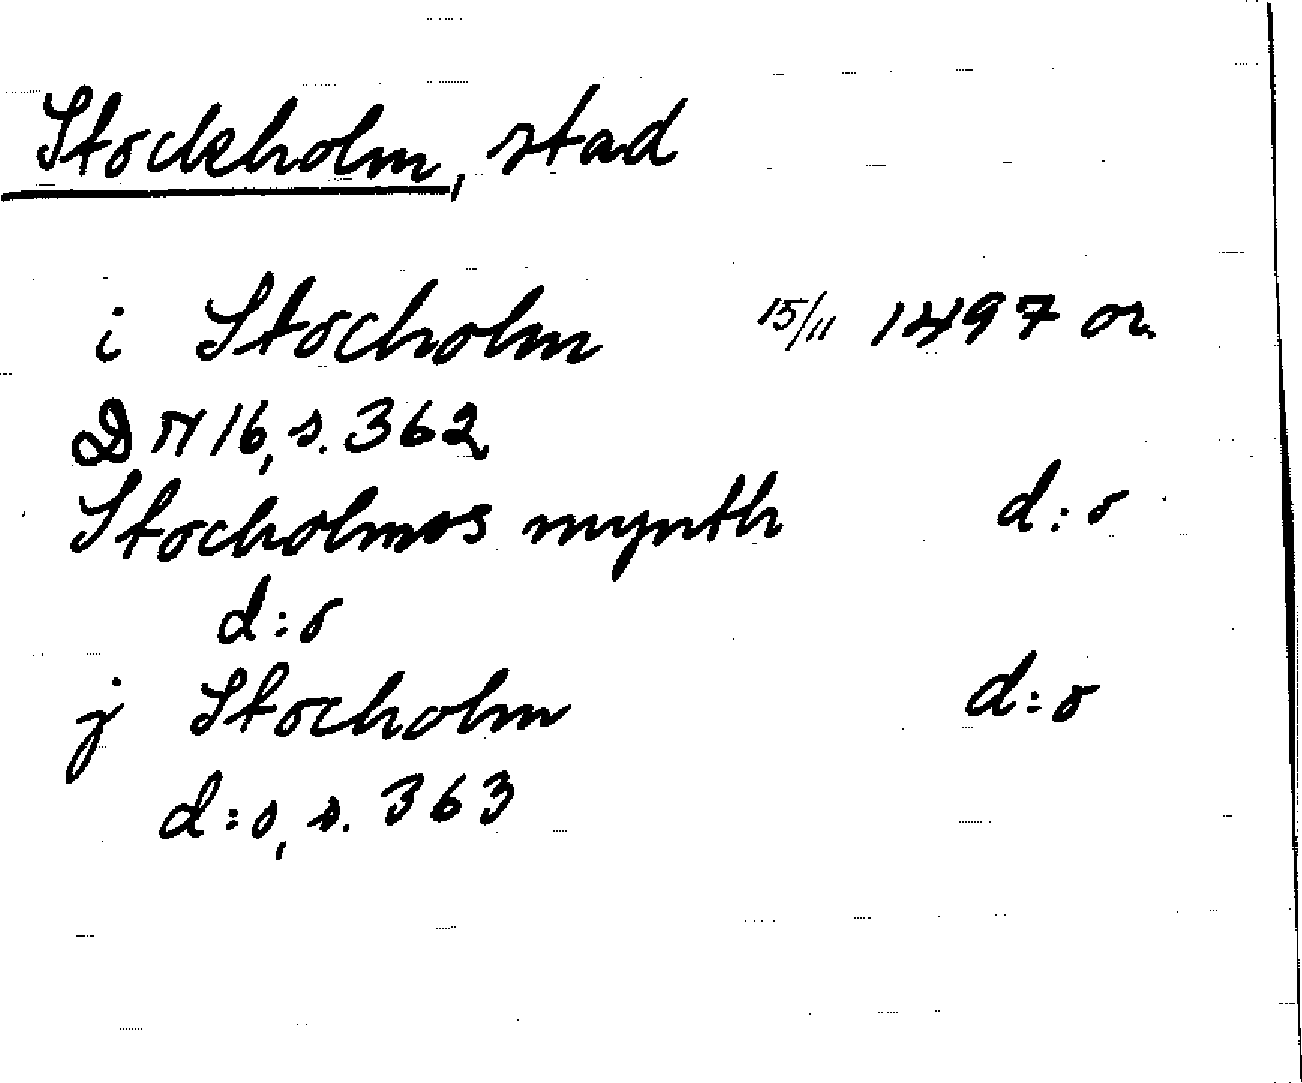 Stockholm, stad
i Stocholm 15/11 1497 or.
DN 16, s. 362
Stocholmos mynth d:o
d:o
j Stocholm d:o
d:o, s. 363